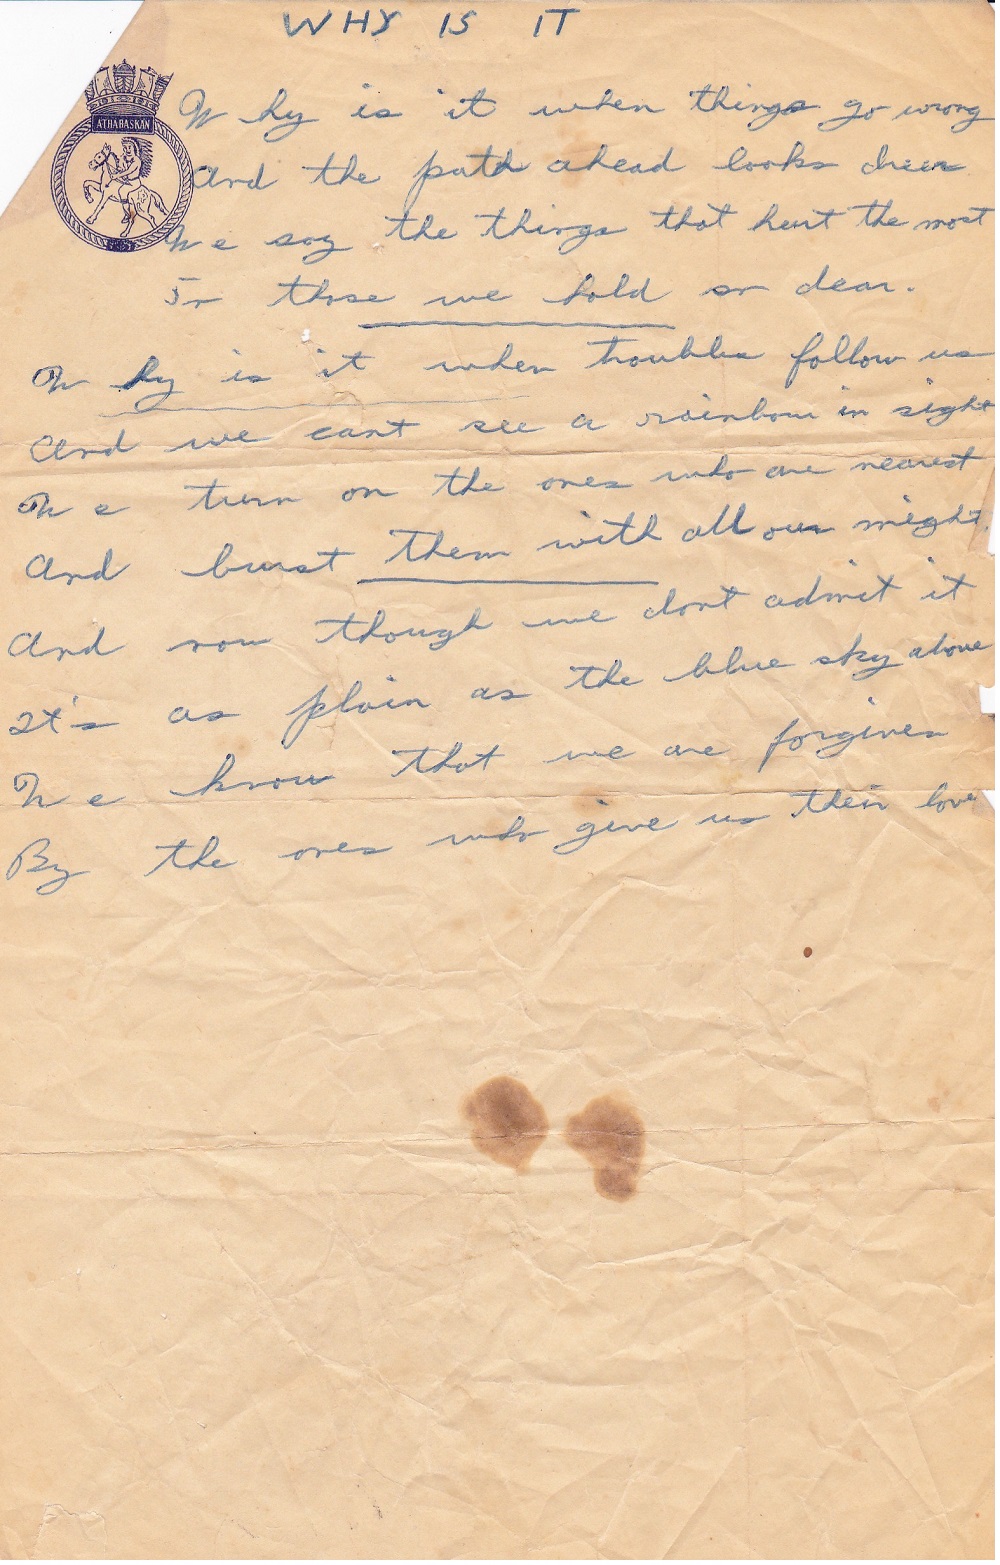 WHY IS IT
ATHABASKAN
Why is it when things go wrong
And the path ahead looks drear
We say the things that hurt the most
To those we hold so dear.
Why is it when troubles follow us
And we cant see a rainbow in sight
We turn on the ones who are nearest
And burst them with all our might.
And now though we dont admit it
It's as plain as the blue sky above
We know that we are forgiven
By the ones who give us their love